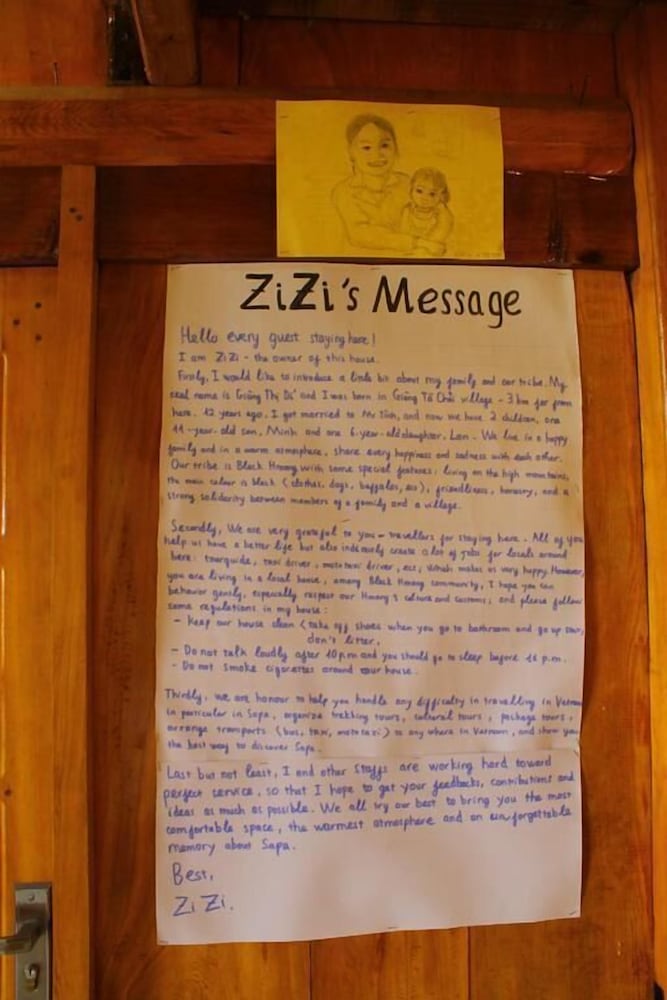 ZiZi's Message
Hello every guest staying here!
I am ZiZi - the owner of this house.
Firstly, I would like to introduce a little bit about my family and our tribe. My
real name is Giàng Thị and I was born in Giàng Tả Chải village - 3 km far from
here. 12 years ago, I got married to Mr and now we have 2 children, one
11-year-old son, Minh and one 6-year-old daughter, Lan. We live in a happy
family and in a warm atmosphere, share every happiness and sadness with each other.
Our tribe is Black Hmong with some special features: living on the high mountains,
the main colour is black (clothes, dogs, buffalos, etc), friendliness, honesty, and a
strong solidarity between members of a family and a village.
Secondly, We are very grateful to you - travellers for staying here. All of you
help us have a better life but also indirectly create a lot of jobs for locals around
here: tourguide, taxi driver, mototaxi driver, etc, which makes us very happy. However,
you are living in a local house, among Black Hmong community, I hope you can
behavior gently, especially respect our Hmong's culture and customs; and please follow
some regulations in my house:
- Keep our house clean (take off shoes when you go to bathroom and go up stair,
don't litter.
- Do not talk loudly after 10 p.m and you should go to sleep before 11 p.m.
- Do not smoke cigarettes around our house.
Thirdly, we are honour to help you handle any difficulty in travelling in Vietnam
in particular in Sapa, organize trekking tours, cultural tours, package tours,
arrange transports (bus, taxi, mototaxi) to any where in Vietnam, and show you
the best way to discover Sapa.
Last but not least, I and other staffs are working hard toward
perfect service, so that I hope to get your feedbacks, contributions and
ideas as much as possible. We all try our best to bring you the most
comfortable space, the warmest atmosphere and an unforgettable
memory about Sapa.
Best,
ZiZi.